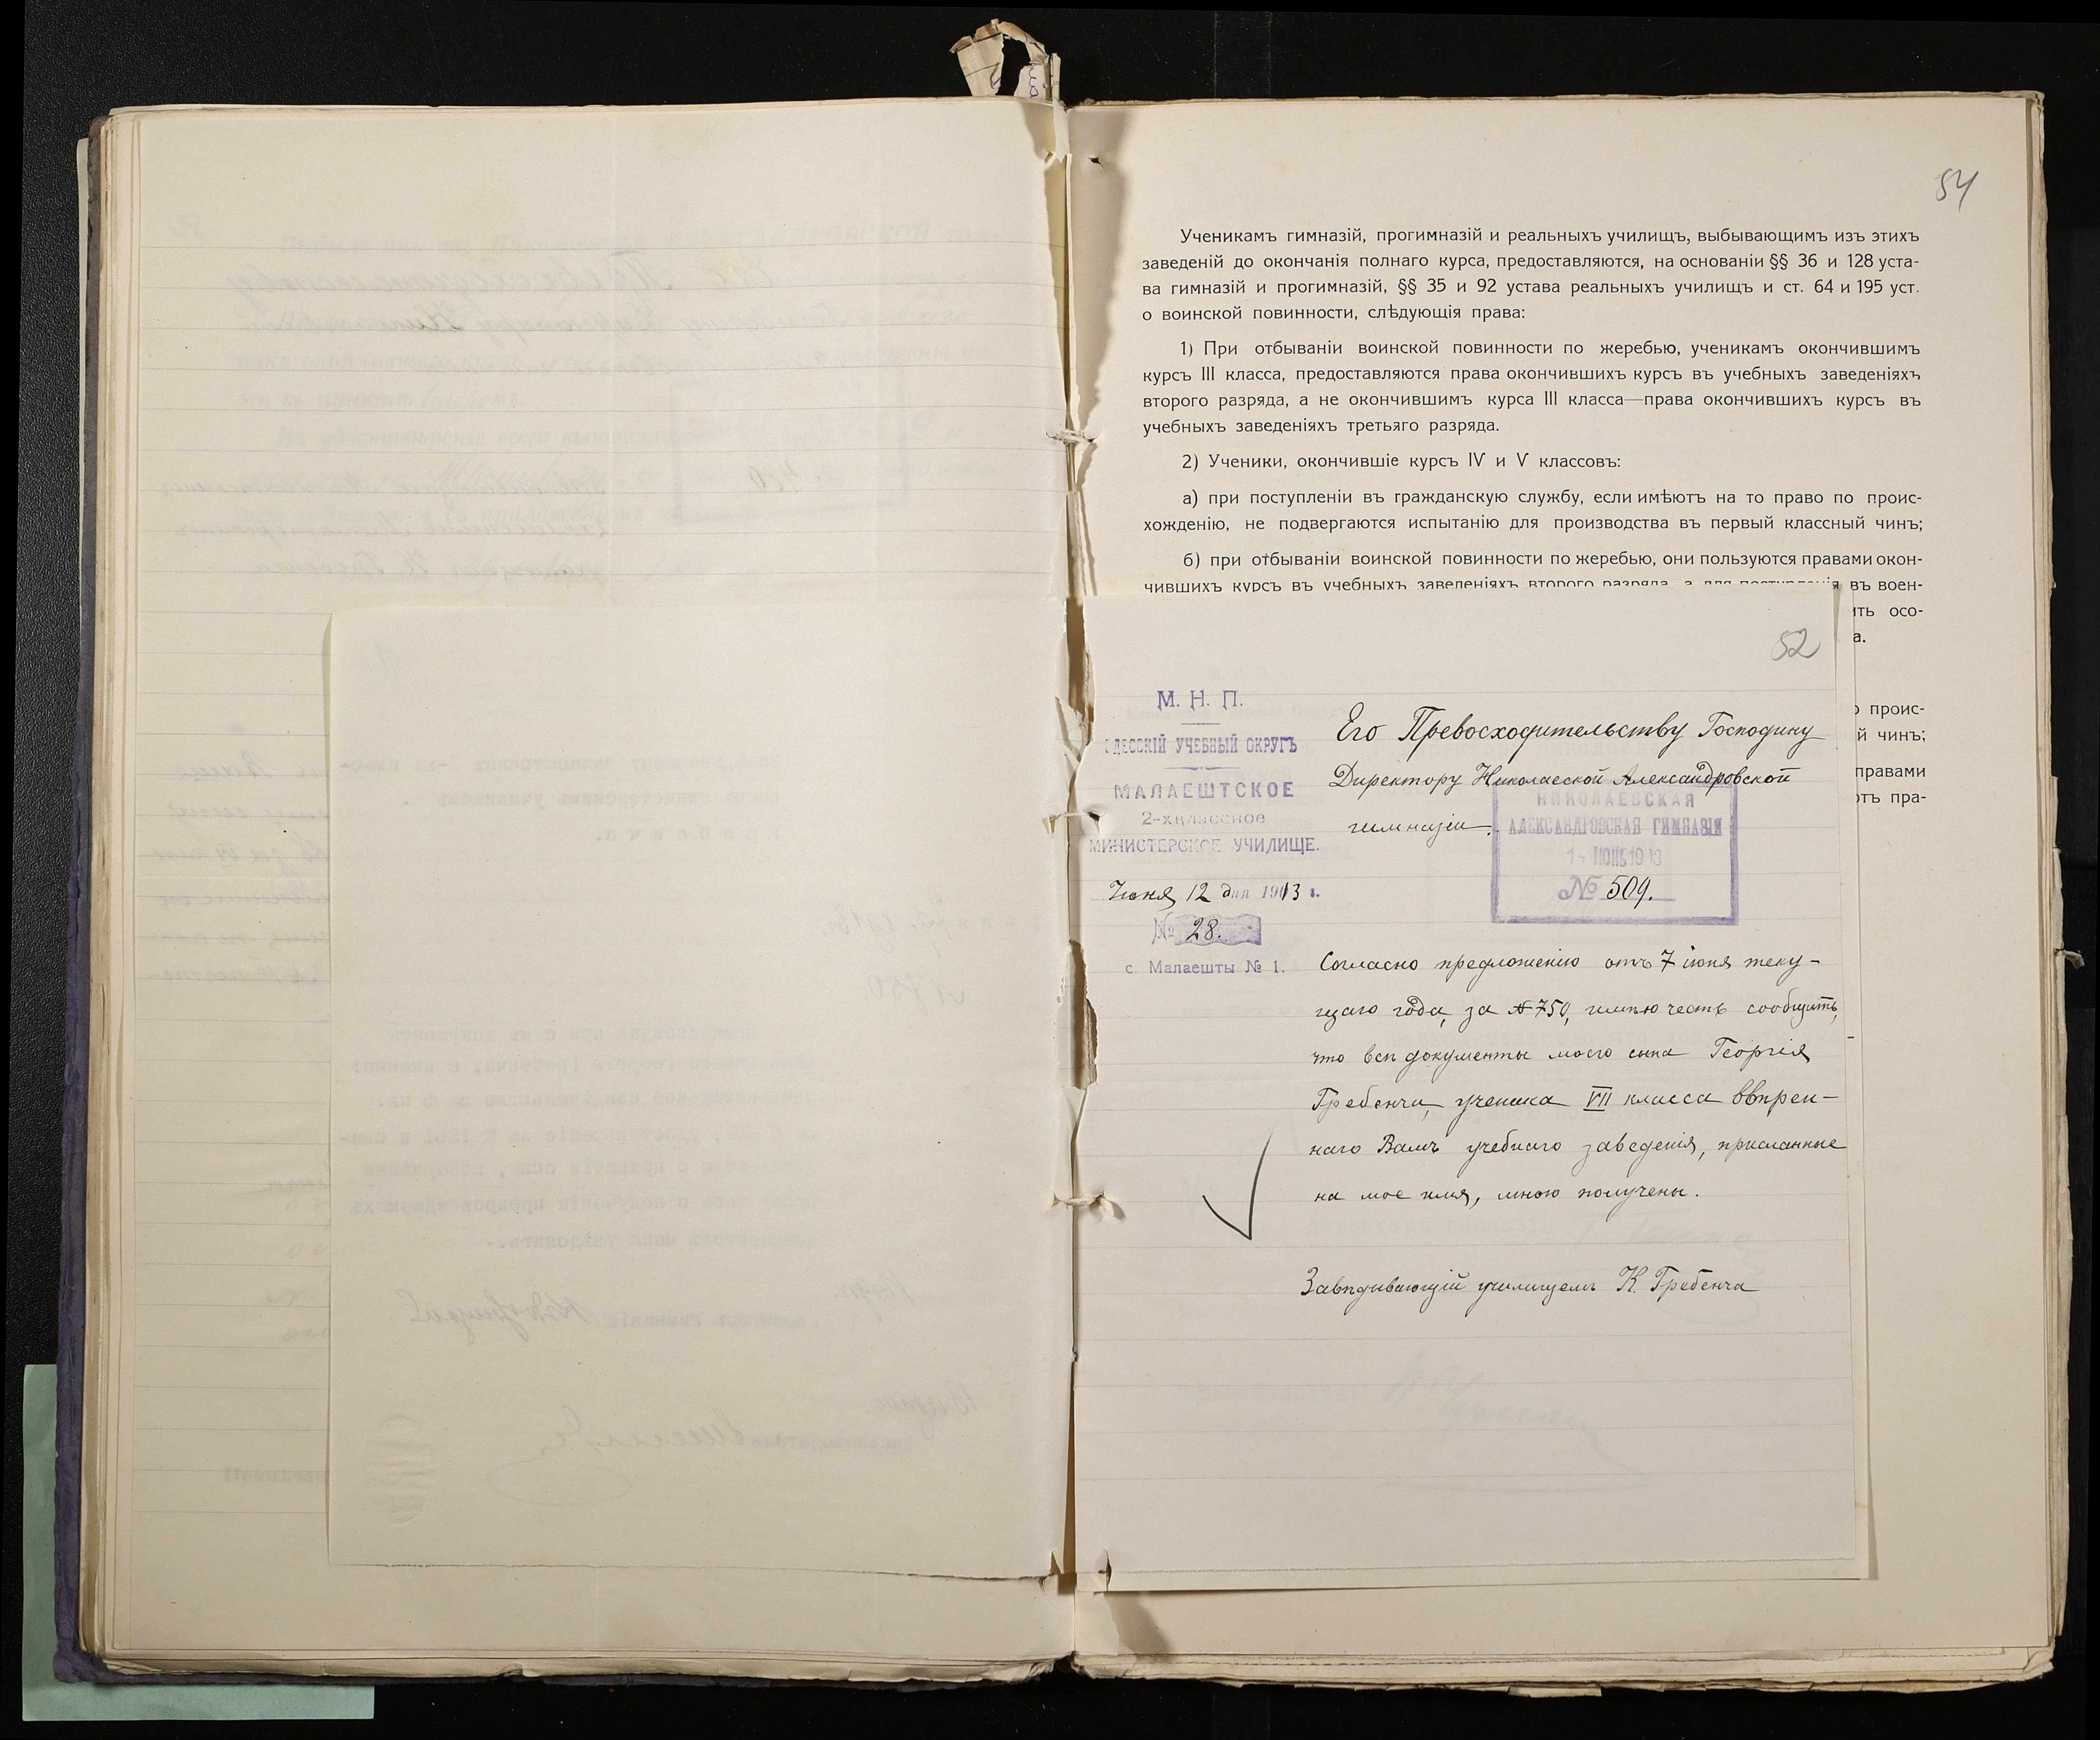 54
Ученикамъ гимназій, прогимназій и реальныхъ училищъ, выбывающимъ изъ этихъ
заведеній до окончанія полнаго курса, предоставляются, на основаніи §§ 36 и 128 уста-
ва гимназій и прогимназій, §§ 35 и 92 устава реальныхъ училищъ и ст. 64 и 195 уст.
о воинской повинности, слѣдующія права:
1) При отбываніи воинской повинности по жеребью, ученикамъ окончившимъ
курсъ III класса, предоставляются права окончившихъ курсъ въ учебныхъ заведеніяхъ
второго разряда, а не окончившимъ курса III класса—права окончившихъ курсъ въ
учебныхъ заведеніяхъ третьяго разряда.
2) Ученики, окончившіе курсъ IV и V классовъ:
а) при поступленіи въ гражданскую службу, если имѣютъ на то право по проис-
хожденію, не подвергаются испытанію для производства въ первый классный чинъ;
б) при отбываніи воинской повинности по жеребью, они пользуются правами окон-
чившихъ курсъ въ учебныхъ заведеніяхъ второго разряда, а для поступленія въ воен-
ить осо-
а.
о проис-
й чинъ;
правами
отъ пра-
52
М. Н. П.
ОДЕССКІЙ УЧЕБНЫЙ ОКРУГЪ
МАЛАЕШТСКОЕ
2-хклассное
МИНИСТЕРСКОЕ УЧИЛИЩЕ.
Іюня 12 дня 1913 г.
№ 28.
с. Малаешты № 1.
Его Превосходительству Господину
Директору Николаеской Александровской
гимназіи.
НИКОЛАЕВСКАЯ
АЛЕКСАНДРОВСКАЯ ГИМНАЗІЯ
14 ІЮНЬ 1913
№ 509.
Согласно предложенію отъ 7 іюня теку-
щаго года, за № 750, имѣю честь сообщить,
что всѣ документы моего сына Георгія
Гребенча, ученика VII класса ввѣрен-
наго Вамъ учебнаго заведенія, присланные
на мое имя, мною получены.
Завѣдывающій училищемъ К. Гребенча